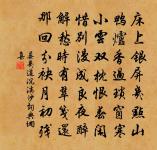 床上銀屏幾點山
鴨爐香過瑣窗寒
小雲雙枕恨春閑
惜別漫成良夜醉
解愁時有翠箋還
那回分袂月初殘
晏幾道浣溪沙詞